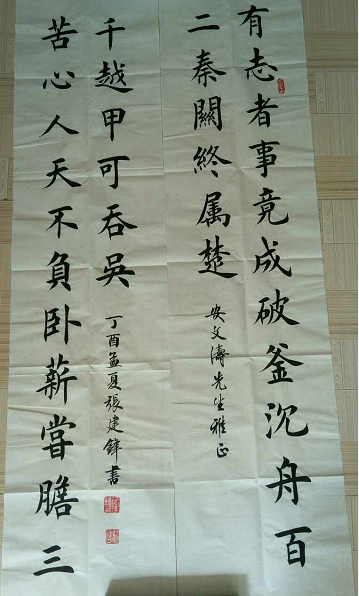 有志者事竟成破釜沉舟百
二秦關終属楚
安文濤先生雅正
苦心人天不負卧薪嘗膽三
千越甲可吞吳
丁酉孟夏張建鋒書